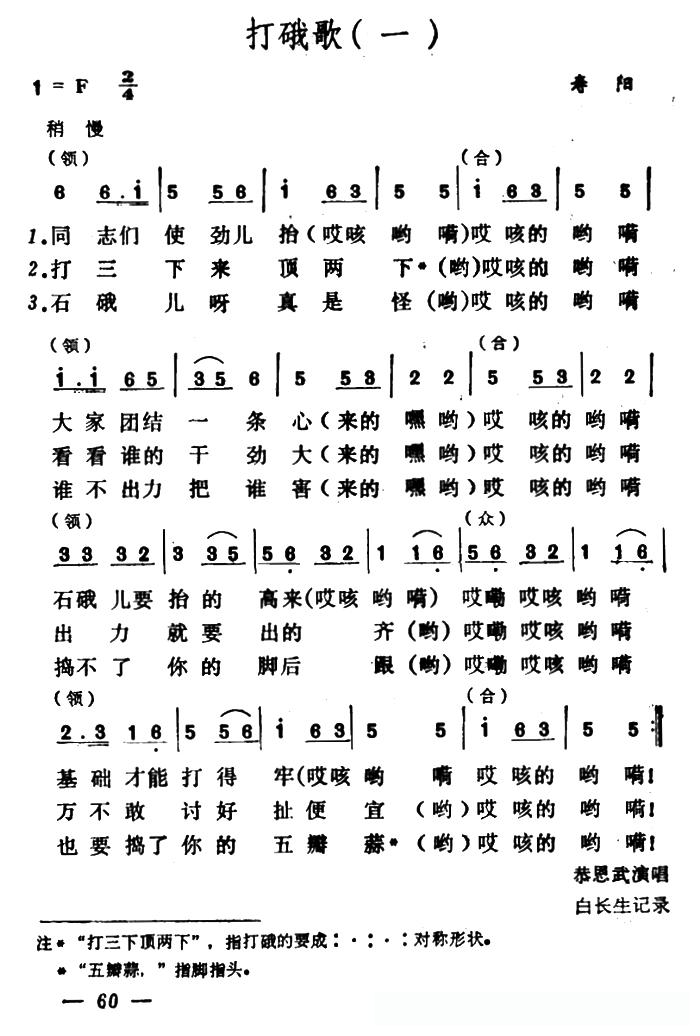 打硪歌（一）
1 = F 2/4 寿 阳
稍 慢
（领） （合）
6 6.i | 5 5 6 | i 6 3 | 5 5 | i 6 3 | 5 5 |
1.同 志们 使 劲儿 抬（哎咳 哟 嗬）哎 咳的 哟 嗬
2.打 三 下 来 顶 两 下*（哟）哎 咳的 哟 嗬
3.石 硪 儿 呀 真 是 怪（哟）哎 咳的 哟 嗬
（领） （合）
i.i 6 5 | 3 5 6 | 5 5 3 | 2 2 | 5 5 3 | 2 2 |
大 家 团结 一 条 心（来的 嘿 哟）哎 咳的 哟 嗬
看 看 谁的 干 劲 大（来的 嘿 哟）哎 咳的 哟 嗬
谁 不 出力 把 谁 害（来的 嘿 哟）哎 咳的 哟 嗬
（领） （众）
3 3 3 2 | 3 3 5 | 5 6 3 2 | 1 1 6 | 5 6 3 2 | 1 1 6 |
石硪 儿要 抬 的 高来(哎咳 哟 嗬) 哎嘞 哎咳 哟 嗬
出 力 就 要 出 的 齐（哟）哎嘞 哎咳 哟 嗬
捣不 了 你 的 脚后 跟（哟）哎嘞 哎咳 哟 嗬
（领） （合）
2.3 1 6 | 5 5 6 | i 6 3 | 5 5 | i 6 3 | 5 5 :‖
基 础 才能 打 得 牢(哎咳 哟 嗬 哎 咳的 哟 嗬！
万 不 敢 讨 好 扯 便 宜（哟）哎 咳的 哟 嗬！
也 要 捣了 你 的 五 瓣 蒜*（哟）哎 咳的 哟 嗬！
恭恩武演唱
白长生记录
注*“打三下顶两下”，指打硪的要成：·：·：对称形状。
*“五瓣蒜，”指脚指头。
— 60 —